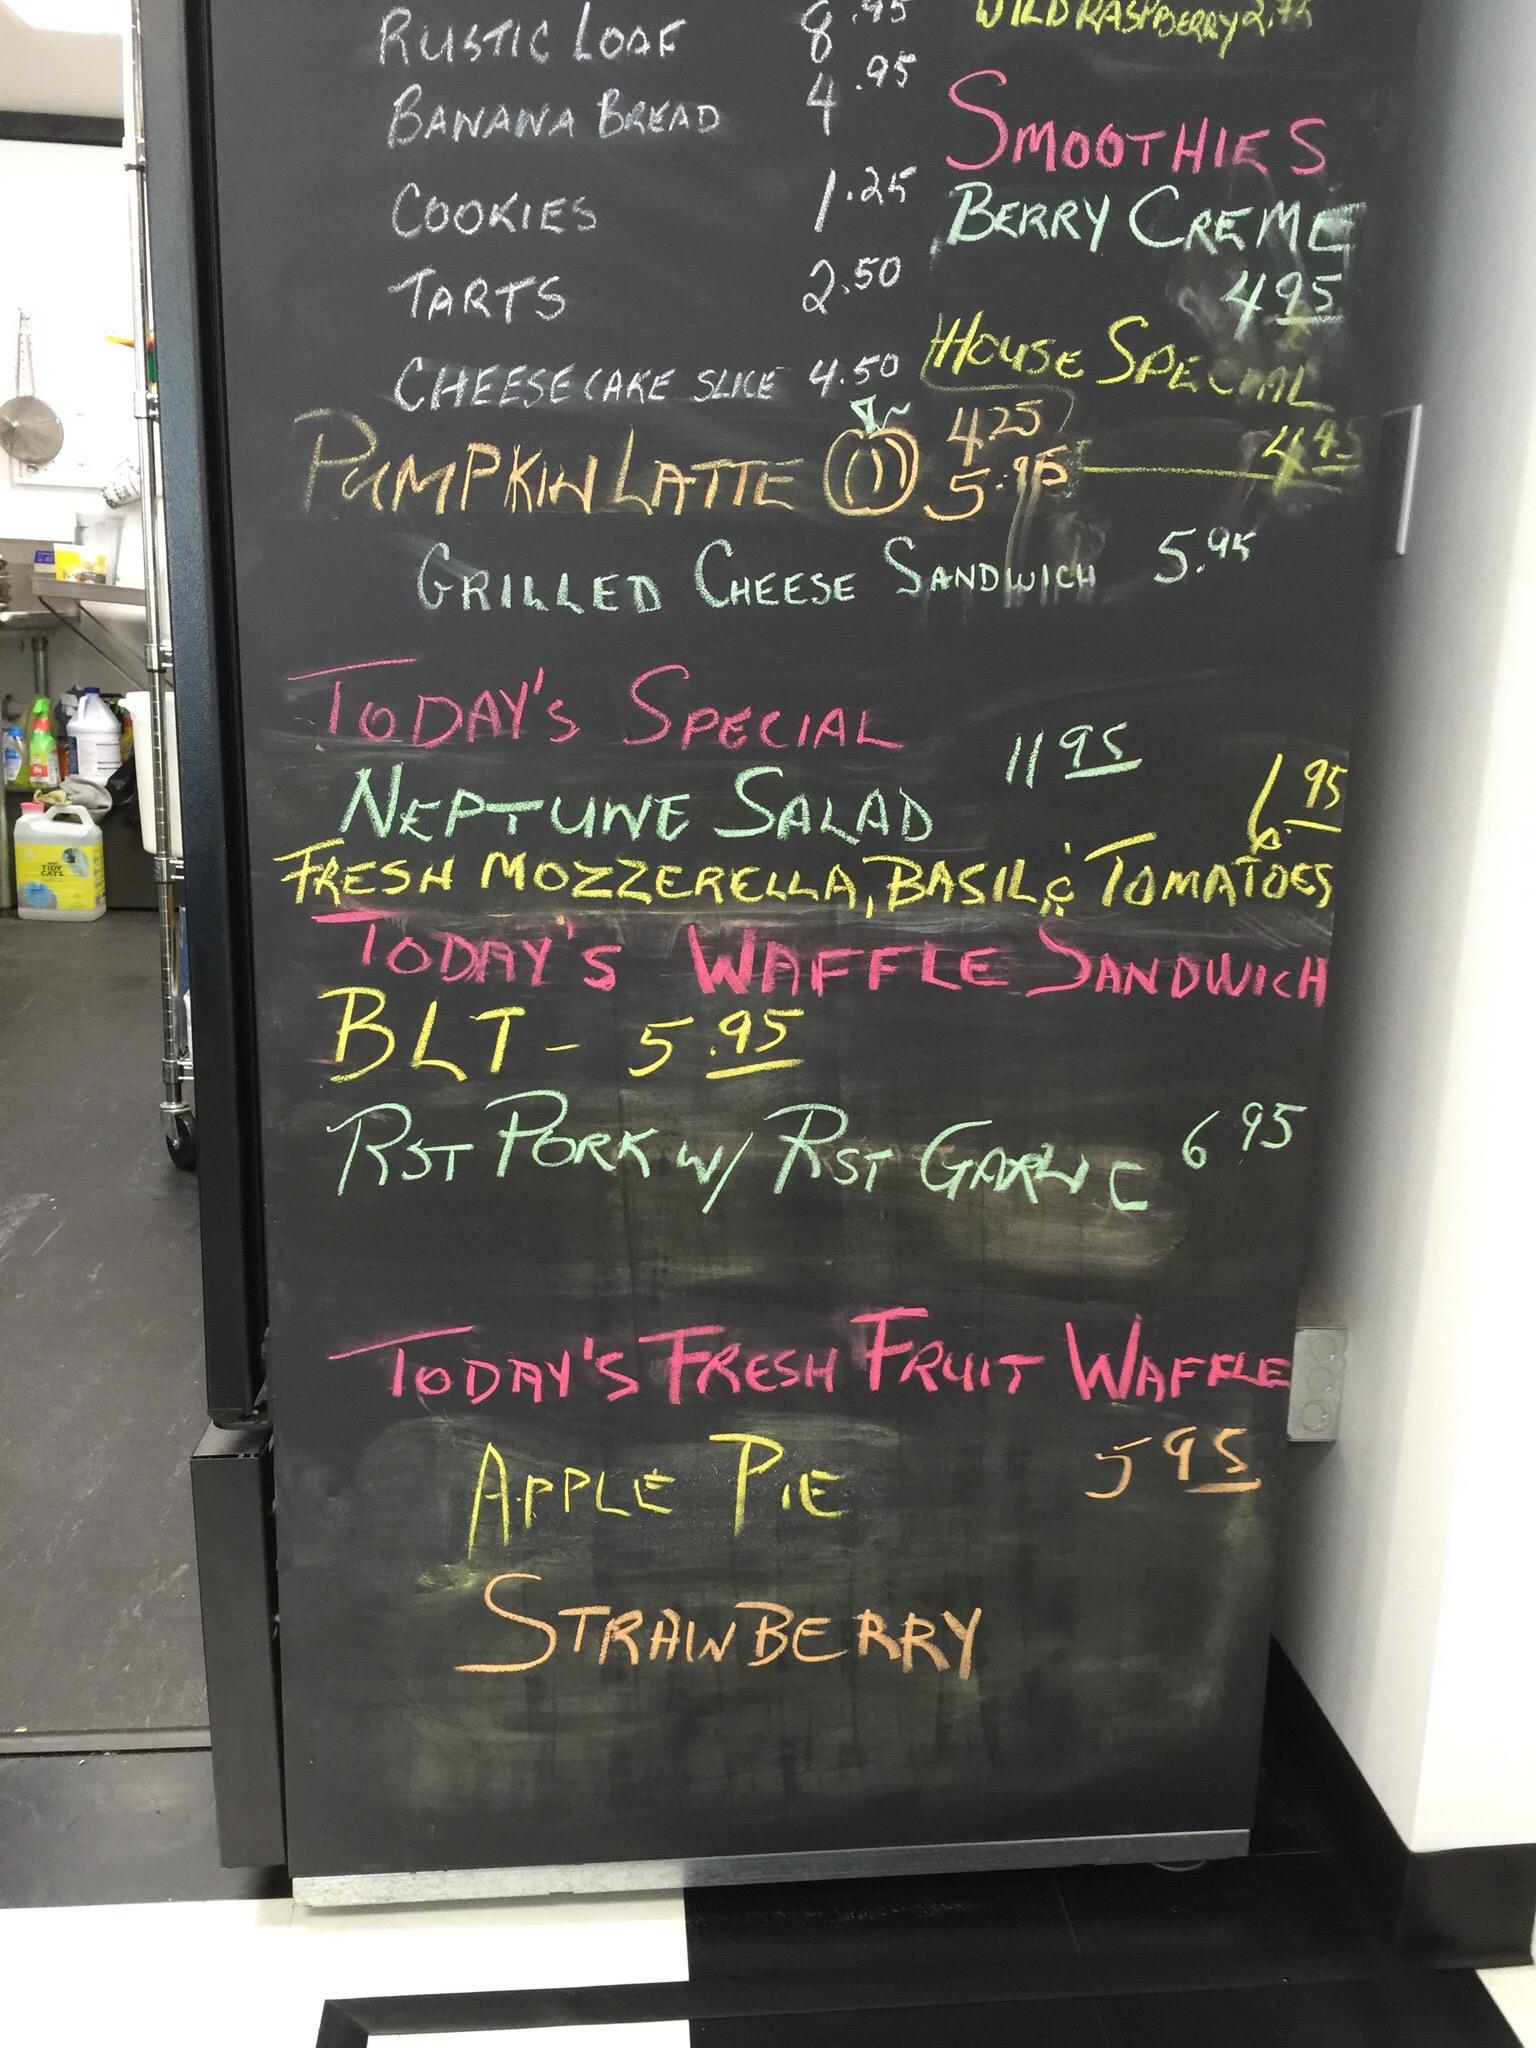 RUSTIC LOAF 8.95
WILD RASPBERRY 2.75
BANANA BREAD 4.95
SMOOTHIES
COOKIES 1.25
BERRY CREME
TARTS 2.50
4 95
HOUSE SPECIAL
CHEESECAKE SLICE 4.50
4 95
PUMPKIN LATTE 4.25
5.95
GRILLED CHEESE SANDWICH 5.95
TODAY'S SPECIAL
NEPTUNE SALAD 11 95
6.95
FRESH MOZZERELLA, BASIL & TOMATOES
TODAY'S WAFFLE SANDWICH
BLT - 5.95
RST PORK W/ RST GARLIC 6 95
TODAY'S FRESH FRUIT WAFFLE
APPLE PIE 5 95
STRAWBERRY
TIDY
CATS